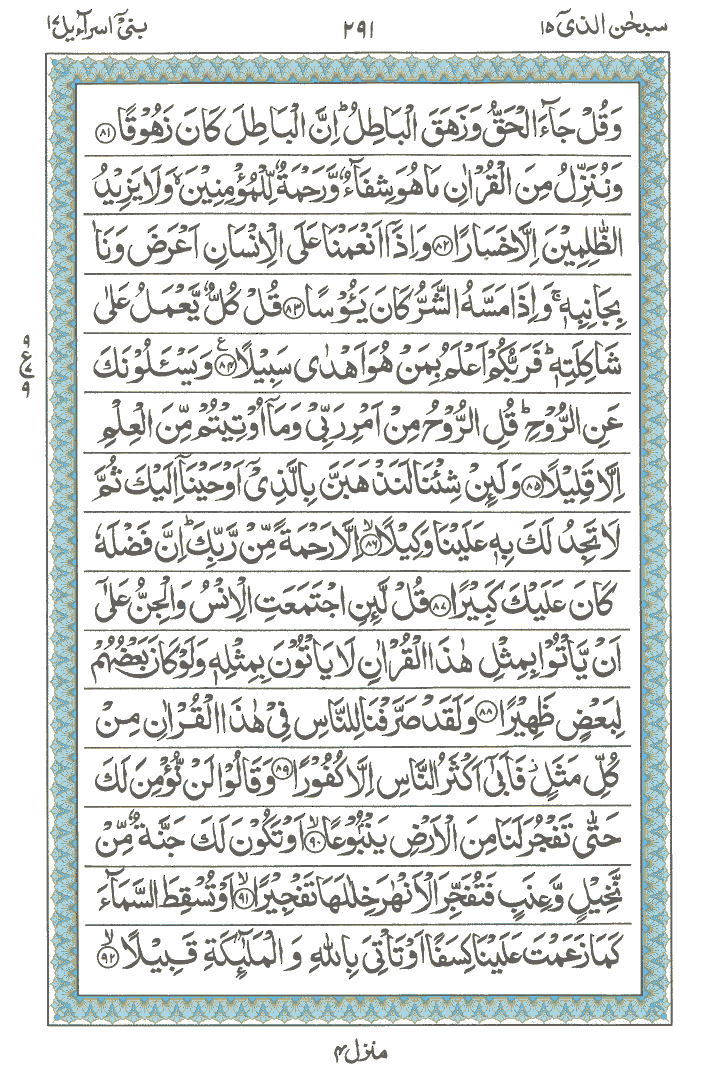 سبحٰن الذیٓ ۱۵
۲۹۱
بنیٓ اسرآءیل ۱۷
وَقُلْ جَآءَ الْحَقُّ وَزَهَقَ الْبَاطِلُ ؕ اِنَّ الْبَاطِلَ كَانَ زَهُوْقًا ﴿۸۱﴾
وَنُنَزِّلُ مِنَ الْقُرْاٰنِ مَا هُوَ شِفَآءٌ وَّرَحْمَةٌ لِّلْمُؤْمِنِيْنَ ۙ وَلَا يَزِيْدُ
الظّٰلِمِيْنَ اِلَّا خَسَارًا ﴿۸۲﴾ وَاِذَاۤ اَنْعَمْنَا عَلَى الْاِنْسَانِ اَعْرَضَ وَنَاٰ
بِجَانِبِهٖ ۚ وَاِذَا مَسَّهُ الشَّرُّ كَانَ يَـُٔوْسًا ﴿۸۳﴾ قُلْ كُلٌّ يَّعْمَلُ عَلٰى
شَاكِلَتِهٖ ؕ فَرَبُّكُمْ اَعْلَمُ بِمَنْ هُوَ اَهْدٰى سَبِيْلًا ﴿۸۴﴾ ع وَيَسْـَٔلُوْنَكَ
۹
ع
۷
۹
عَنِ الرُّوْحِ ؕ قُلِ الرُّوْحُ مِنْ اَمْرِ رَبِّىْ وَمَاۤ اُوْتِيْتُمْ مِّنَ الْعِلْمِ
اِلَّا قَلِيْلًا ﴿۸۵﴾ وَلَئِنْ شِئْنَا لَنَذْهَبَنَّ بِالَّذِىْۤ اَوْحَيْنَاۤ اِلَيْكَ ثُمَّ
لَا تَجِدُ لَكَ بِهٖ عَلَيْنَا وَكِيْلًا ﴿۸۶﴾ ۙ اِلَّا رَحْمَةً مِّنْ رَّبِّكَ ؕ اِنَّ فَضْلَهٗ
كَانَ عَلَيْكَ كَبِيْرًا ﴿۸۷﴾ قُلْ لَّئِنِ اجْتَمَعَتِ الْاِنْسُ وَالْجِنُّ عَلٰٓى
اَنْ يَّاْتُوْا بِمِثْلِ هٰذَا الْقُرْاٰنِ لَا يَاْتُوْنَ بِمِثْلِهٖ وَلَوْ كَانَ بَعْضُهُمْ
لِبَعْضٍ ظَهِيْرًا ﴿۸۸﴾ وَلَقَدْ صَرَّفْنَا لِلنَّاسِ فِىْ هٰذَا الْقُرْاٰنِ مِنْ
كُلِّ مَثَلٍ ؗ فَاَبٰٓى اَكْثَرُ النَّاسِ اِلَّا كُفُوْرًا ﴿۸۹﴾ وَقَالُوْا لَنْ نُّؤْمِنَ لَكَ
حَتّٰى تَفْجُرَ لَنَا مِنَ الْاَرْضِ يَنْۢبُوْعًا ﴿۹۰﴾ ۙ اَوْ تَكُوْنَ لَكَ جَنَّةٌ مِّنْ
نَّخِيْلٍ وَّعِنَبٍ فَتُفَجِّرَ الْاَنْهٰرَ خِلٰلَهَا تَفْجِيْرًا ﴿۹۱﴾ ۙ اَوْ تُسْقِطَ السَّمَآءَ
كَمَا زَعَمْتَ عَلَيْنَا كِسَفًا اَوْ تَاْتِىَ بِاللّٰهِ وَ الْمَلٰٓئِكَةِ قَبِيْلًا ﴿۹۲﴾ ۙ
منزل ۴